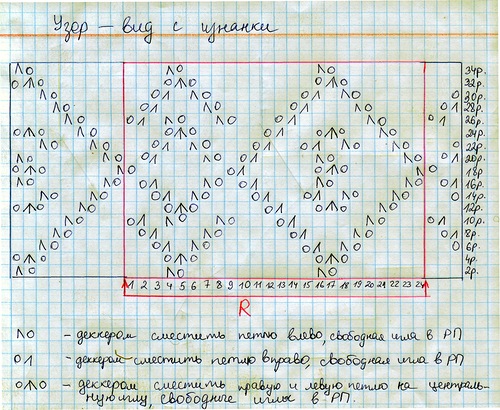 Узор — вид с изнанки
34р.
32р.
30р.
28р.
26р.
24р.
22р.
20р.
18р
16р.
14р.
12р.
10р.
8р.
6р.
4р.
2р.
1 2 3 4 5 6 7 8 9 10 11 12 13 14 15 16 17 18 19 20 21 22 23 24
R
ΛO – деккером сместить петлю влево, свободная игла в РП
OΛ – деккером сместить петлю вправо, свободная игла в РП
OΛO – деккером сместить правую и левую петлю на централь-
ную иглу, свободные иглы в РП.